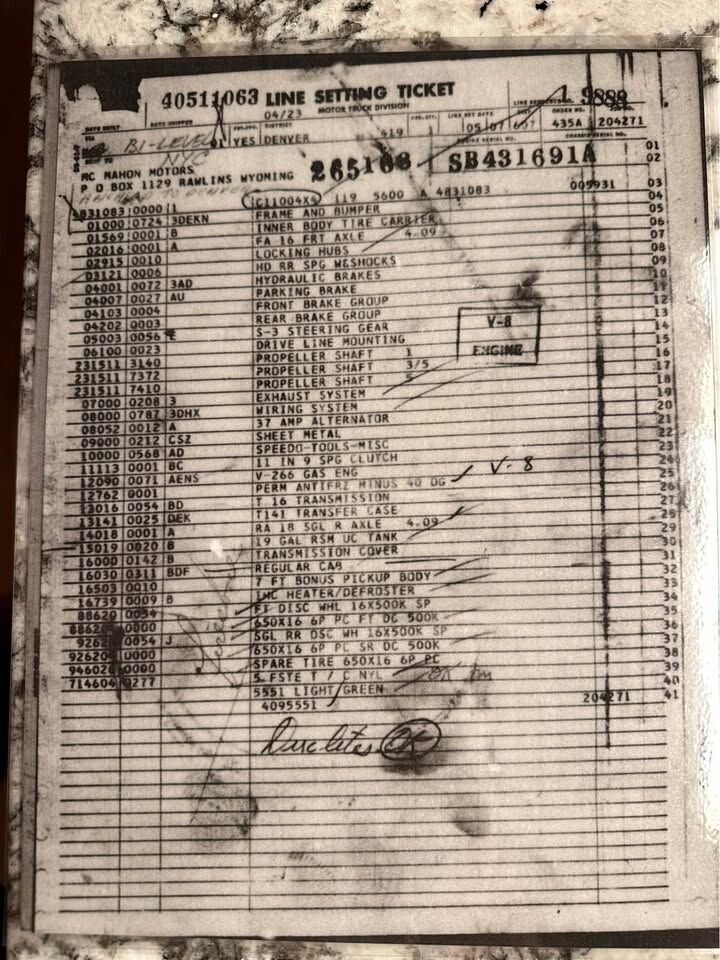 40511063 LINE SETTING TICKET
MOTOR TRUCK DIVISION
04/23
DATE BUILT DATE SHIPPED DISTRICT LINE SET DATE
BI-LEVEL YES DENVER 419 05/07 607 435A 204271
NYC
MC MAHON MOTORS 265108 SB431691A 01
P O BOX 1129 RAWLINS WYOMING 02
C11004X4 119 5600 A 4831083 005931 03
4831083 0000 1 FRAME AND BUMPER 04
01000 0724 3DEKN INNER BODY TIRE CARRIER 05
01569 0001 B FA 16 FRT AXLE 4.09 06
02016 0001 A LOCKING HUBS 07
02915 0010 HD RR SPG W&SHOCKS 08
03121 0006 HYDRAULIC BRAKES 09
04001 0072 3AD PARKING BRAKE 10
04007 0027 AU FRONT BRAKE GROUP 11
04103 0004 REAR BRAKE GROUP 12
04202 0003 S-3 STEERING GEAR 13
05003 0056 E DRIVE LINE MOUNTING 14
06100 0023 PROPELLER SHAFT 1 15
231511 3140 PROPELLER SHAFT 3/5 16
231511 7372 PROPELLER SHAFT 5 17
231511 7410 EXHAUST SYSTEM 18
V-8
ENGINE
07000 0208 3 WIRING SYSTEM 19
08000 0787 3DHX 37 AMP ALTERNATOR 20
08052 0012 A SHEET METAL 21
09000 0212 CSZ SPEEDO-TOOLS-MISC 22
10000 0568 AD 11 IN 9 SPG CLUTCH 23
11113 0001 BC V-266 GAS ENG V-8 24
12090 0071 AENS PERM ANTIFRZ MINUS 40 DG 25
12762 0001 T 16 TRANSMISSION 26
13016 0054 BD T141 TRANSFER CASE 27
13141 0025 DEK RA 18 SGL R AXLE 4.09 28
14018 0001 A 19 GAL RSM UC TANK 29
15019 0020 B TRANSMISSION COVER 30
16000 0142 B REGULAR CAB 31
16030 0311 BDF 7 FT BONUS PICKUP BODY 32
16503 0010 IHC HEATER/DEFROSTER 33
16739 0009 B FT DISC WHL 16X500K SP 34
88620 0034 650X16 6P PC FT DC 500K 35
SGL RR DSC WH 16X500K SP 36
0054 J 650X16 6P PC SR DC 500K 37
926204 0000 SPARE TIRE 650X16 6P PC 38
946020 0000 S FSTE T / C NYL OK 39
714604 0277 5551 LIGHT/GREEN 40
4095551 204271 41
OK